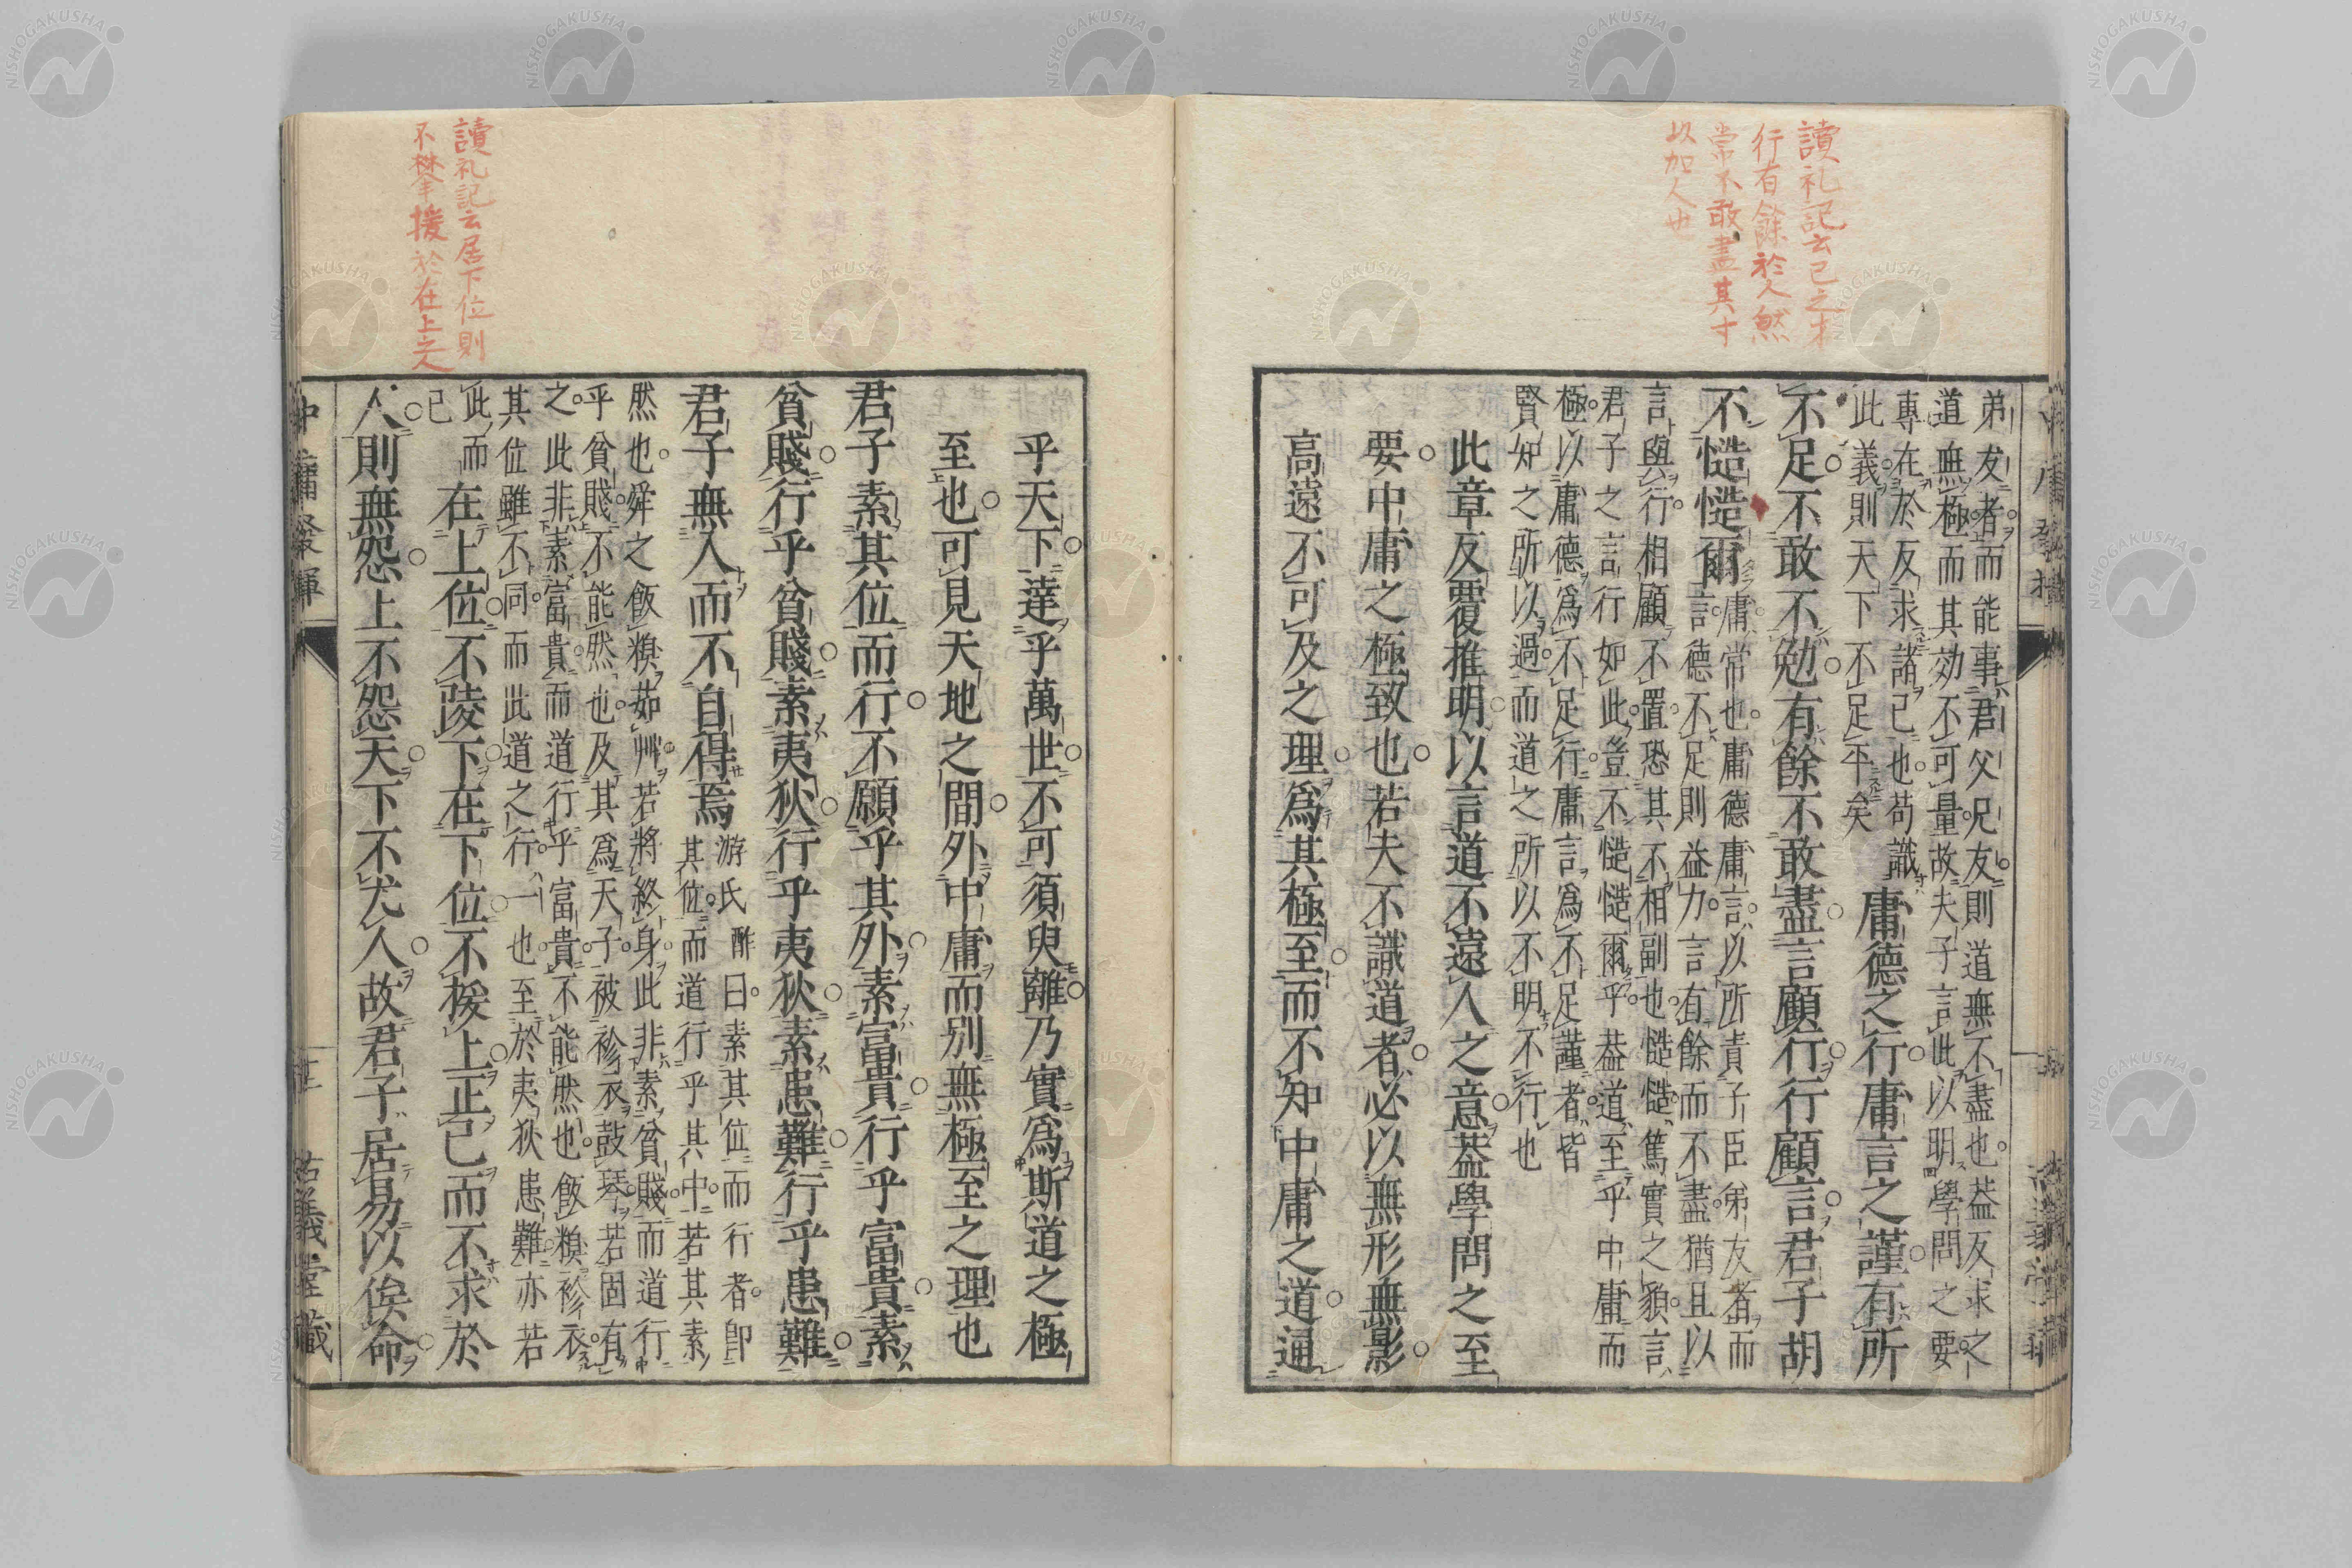 讀礼記云己之才
行有餘於人然
常不敢盡其才
以加人也
弟友者而能事君父兄友則道無不盡也蓋反求之
道無極而其効不可量故夫子言此以明學問之要
專在於反求諸己也苟識
此義則天下不足平矣
庸德之行庸言之謹有所
不足不敢不勉有餘不敢盡言顧行行顧言君子胡
不慥慥爾
庸常也庸德庸言以所責子臣弟友者而
言德不足則益力言有餘而不盡猶且以
言與行相顧不置恐其不相副也慥慥篤實之貌言
君子之言行如此豈不慥慥爾乎蓋道至乎中庸而
極以庸德爲不足行庸言爲不足謹者皆
賢知之所以過而道之所以不明不行也
此章反覆推明以言道不遠人之意蓋學問之至
要中庸之極致也若夫不識道者必以無形無影
高遠不可及之理爲其極至而不知中庸之道通
讀礼記云居下位則
不攀援於在上之人
乎天下達乎萬世不可須臾離乃實爲斯道之極
至也可見天地之間外中庸而別無極至之理也
君子素其位而行不願乎其外素富貴行乎富貴素
貧賤行乎貧賤素夷狄行乎夷狄素患難行乎患難
君子無入而不自得焉
游氏酢曰素其位而行者即
其位而道行乎其中若其素
然也舜之飯糗茹艸若將終身此非素貧賤而道行
乎貧賤不能然也及其爲天子被袗衣鼓琴若固有
之此非素富貴而道行乎富貴不能然也飯糗袗衣
其位雖不同而此道之行一也至於夷狄患難亦若
此而
已
在上位不陵下在下位不援上正己而不求於
人則無怨上不怨天下不尤人故君子居易以俟命
中庸發揮
古義堂藏
NISHOGAKUSHA